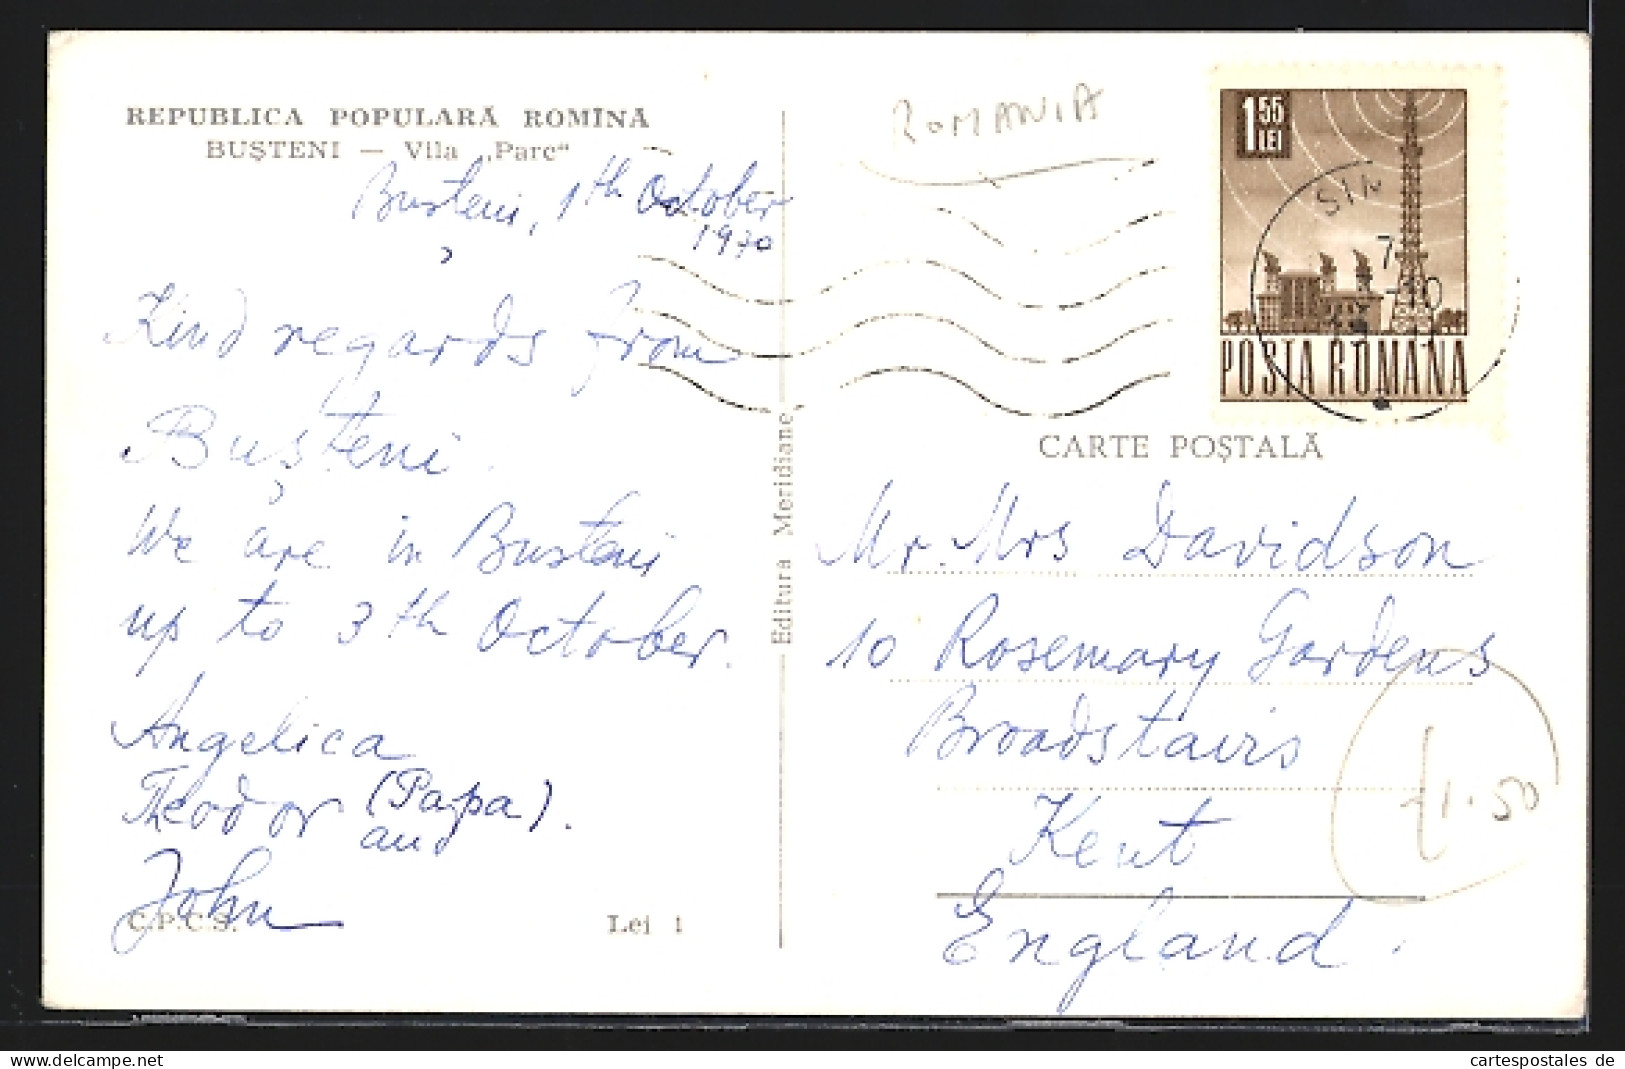 REPUBLICA POPULARĂ ROMÎNĂ
BUȘTENI — Vila „Parc“
Bușteni, 1th October
1970
Kind regards from
Bușteni.
We are in Busteni
up to 3th October.
Angelica
Theodor (Papa).
and
John
C.P.C.S.
Lei 1
Editura Meridiane
ROMANIA
1 55
LEI
POSTA ROMANA
SIN
7
-10
CARTE POȘTALĂ
Mr. Mrs Davidson
10 Rosemary Gardens
Broadstairs
Kent
England.
£1.50
www.delcampe.net
cartespostales de